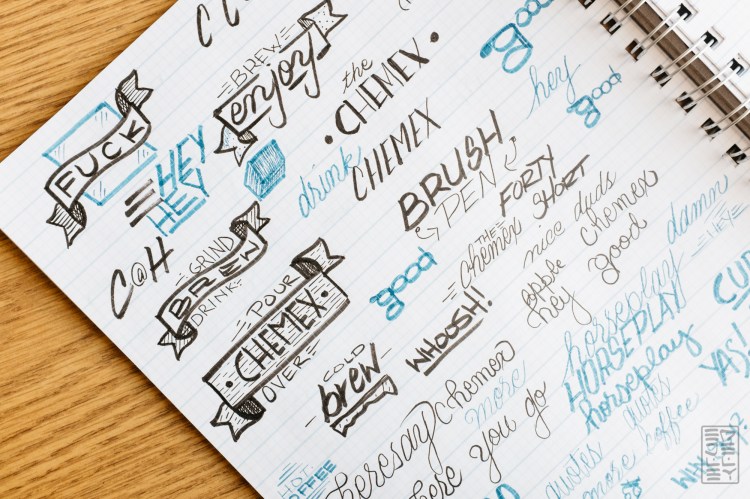 FUCK
HEY
HEY
C@H
BREW
enjoy!
the
CHEMEX
drink
CHEMEX
GRIND
BREW
DRINK
POUR
CHEMEX
OVER
BRUSH
PEN
good
hey
good
good
THE
chemex
FORTY
SHORT
nice duds
apple chemex
hey good
damn
HEY
COLD
brew
WHOOSH!
horseplay
HORSEPLAY
horseplay
YAS!
heresay
chemex
more
here you go
quotes
quotes
more coffee